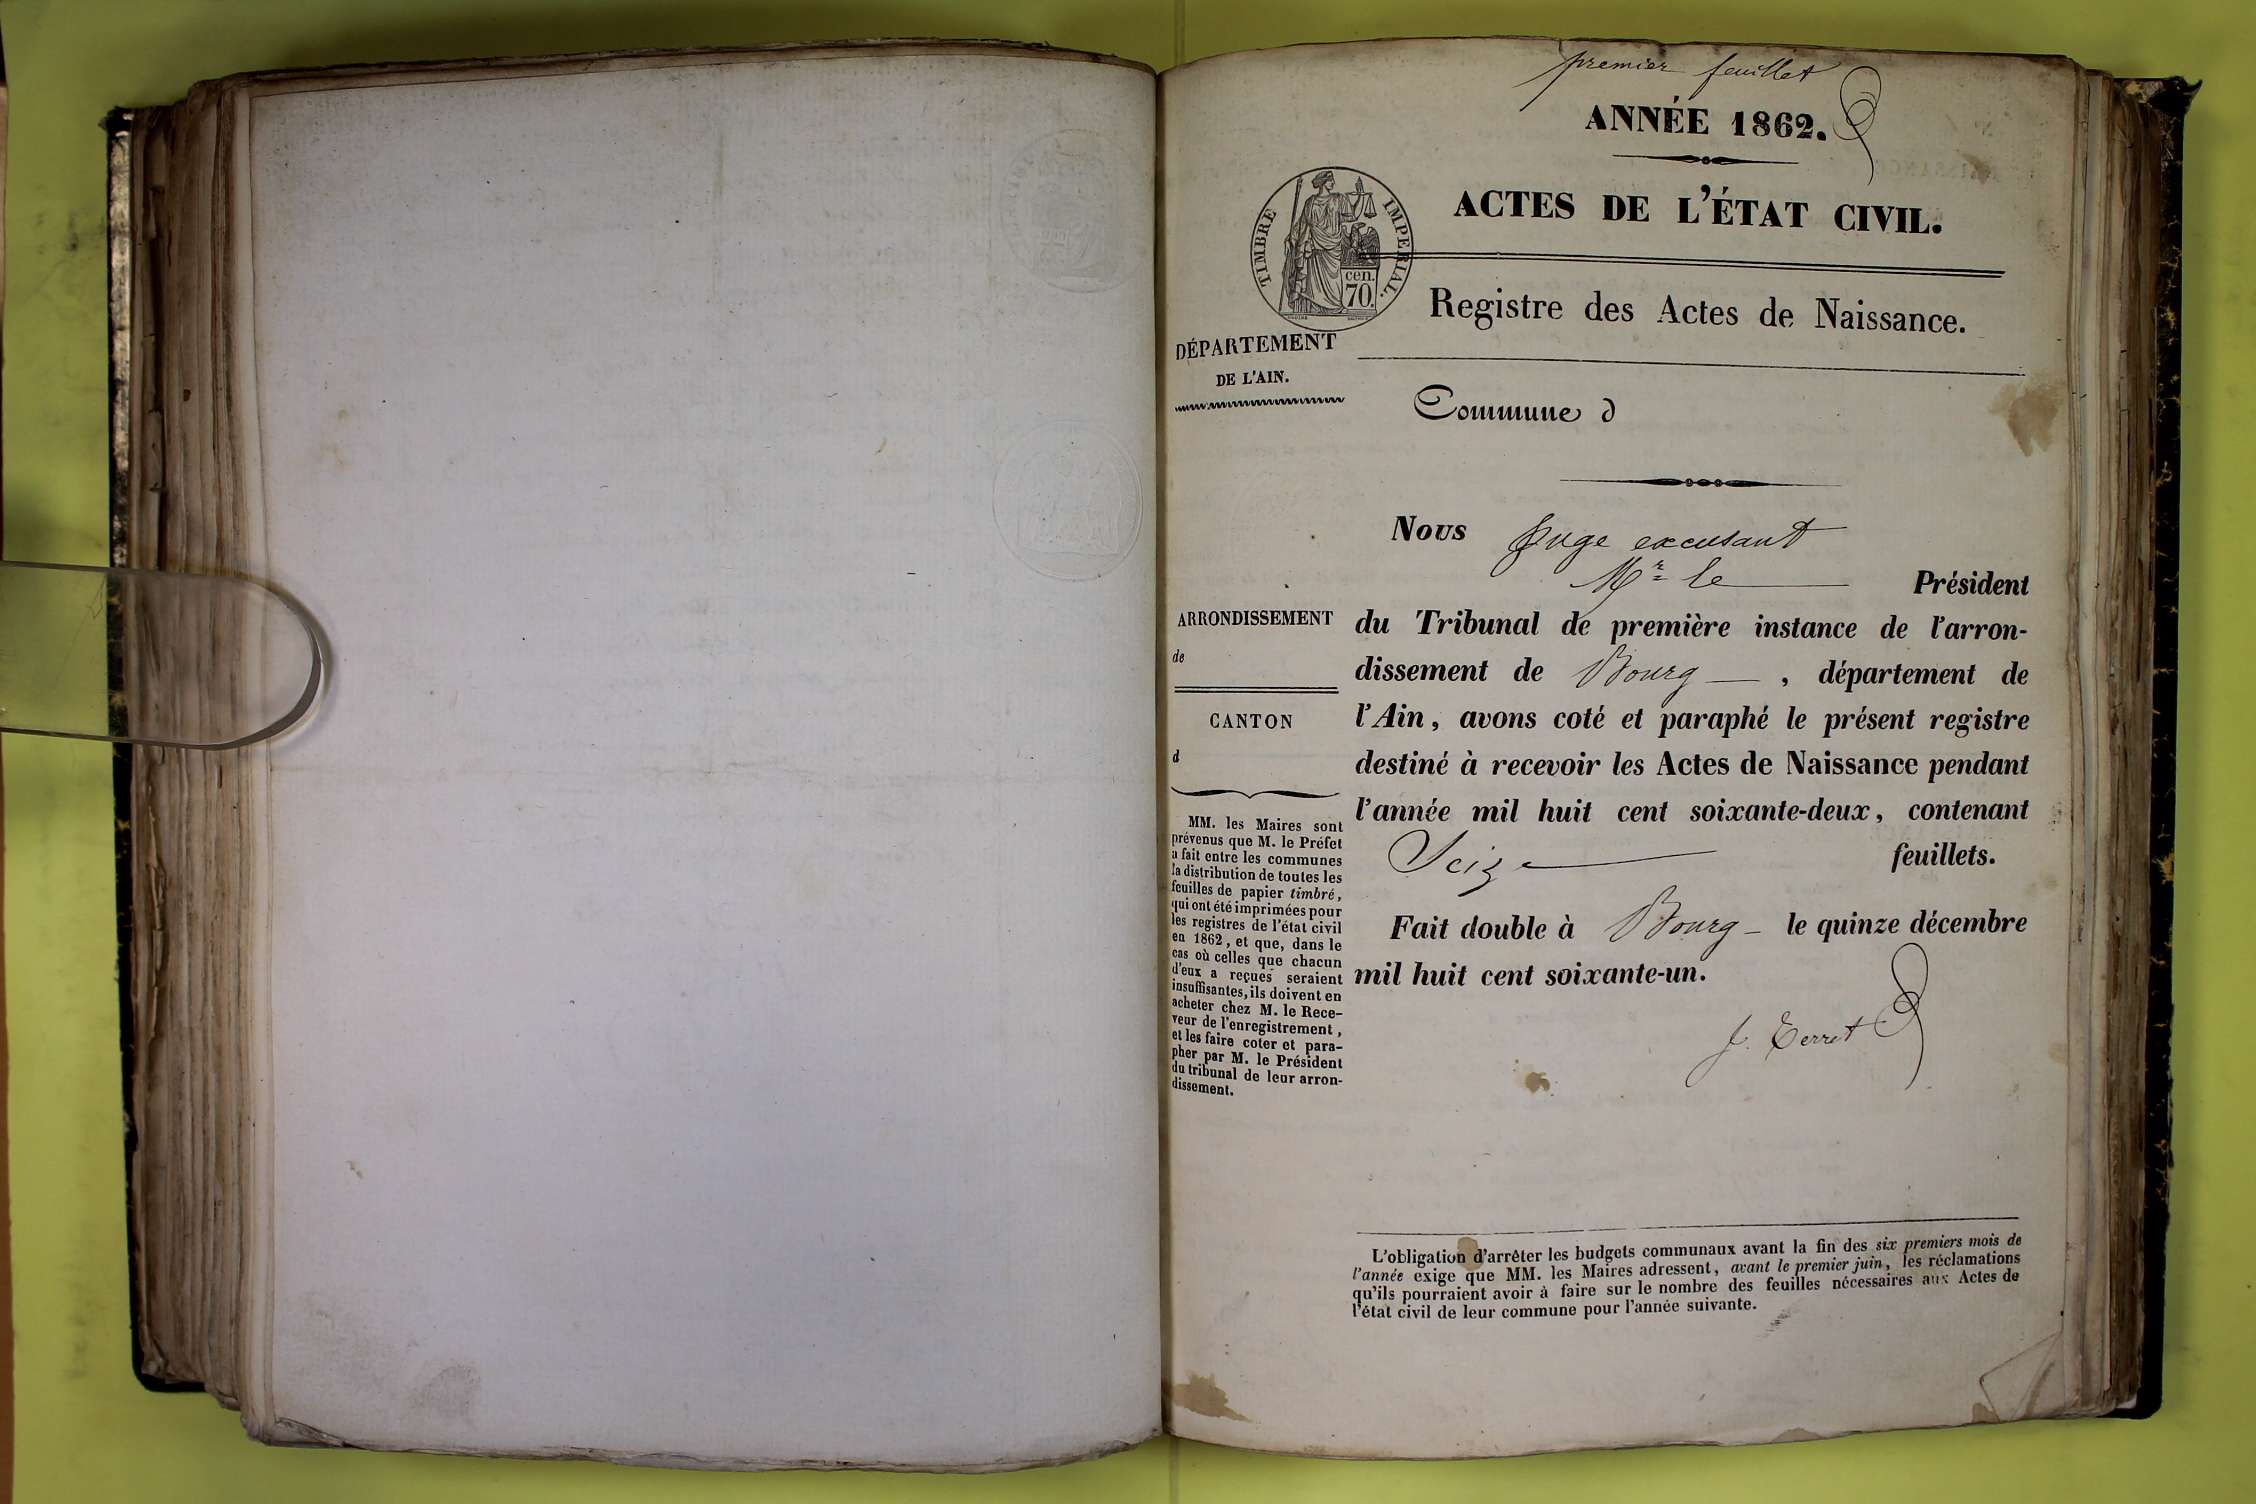 premier feuillet
ANNÉE 1862.
ACTES DE L'ÉTAT CIVIL.
TIMBRE IMPERIAL.
cen.
70.
Registre des Actes de Naissance.
DÉPARTEMENT
DE L'AIN.
Commune d
Nous Juge excusant
Mr le Président
du Tribunal de première instance de l'arron-
dissement de Bourg, département de
l'Ain, avons coté et paraphé le présent registre
destiné à recevoir les Actes de Naissance pendant
l'année mil huit cent soixante-deux, contenant
Seize feuillets.
Fait double à Bourg le quinze décembre
mil huit cent soixante-un.
J. Terret
ARRONDISSEMENT
de
CANTON
d
MM. les Maires sont
prévenus que M. le Préfet
a fait entre les communes
la distribution de toutes les
feuilles de papier timbré,
qui ont été imprimées pour
les registres de l'état civil
en 1862, et que, dans le
cas où celles que chacun
d'eux a reçues seraient
insuffisantes, ils doivent en
acheter chez M. le Rece-
veur de l'enregistrement,
et les faire coter et para-
pher par M. le Président
du tribunal de leur arron-
dissement.
L'obligation d'arrêter les budgets communaux avant la fin des six premiers mois de
l'année exige que MM. les Maires adressent, avant le premier juin, les réclamations
qu'ils pourraient avoir à faire sur le nombre des feuilles nécessaires aux Actes de
l'état civil de leur commune pour l'année suivante.